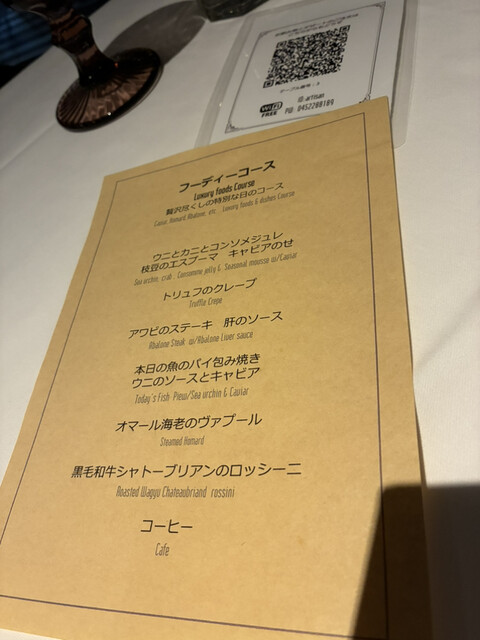 テーブル番号：3
Wi-Fi
FREE
ID: artisan
PW: 0452280189
フーディーコース
Luxury foods Course
贅沢尽くしの特別な日のコース
Caviar, Homard, Abalone, etc... Luxury foods & dishes Course
ウニとカニとコンソメジュレ
枝豆のエスプーマ　キャビアのせ
Sea urchin, crab, Consomme jelly & Seasonal mousse w/Caviar
トリュフのクレープ
Truffle Crepe
アワビのステーキ　肝のソース
Abalone Steak w/Abalone Liver sauce
本日の魚のパイ包み焼き
ウニのソースとキャビア
Today's Fish Piew/Sea urchin & Caviar
オマール海老のヴァプール
Steamed Homard
黒毛和牛シャトーブリアンのロッシーニ
Roasted Wagyu Chateaubriand rossini
コーヒー
Cafe